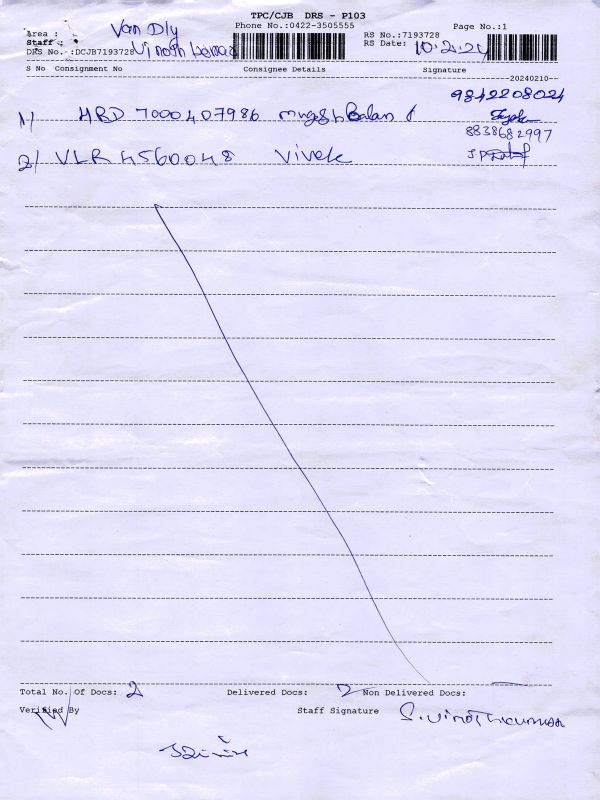 TPC/CJB DRS - P103
Phone No.:0422-3505555
Page No.:1
Area : Van Dly
RS No.:7193728
Staff :
RS Date: 10.2.24
DRS No.-:DCJB7193728
S No Consignment No Consignee Details Signature
--20240210--
9842208024
1) HRD 7000407986
8838682997
2) VLR 4560048 Vivek
Total No. Of Docs: 2 Delivered Docs: 2 Non Delivered Docs:
Verified By Staff Signature S.Vinothkumar